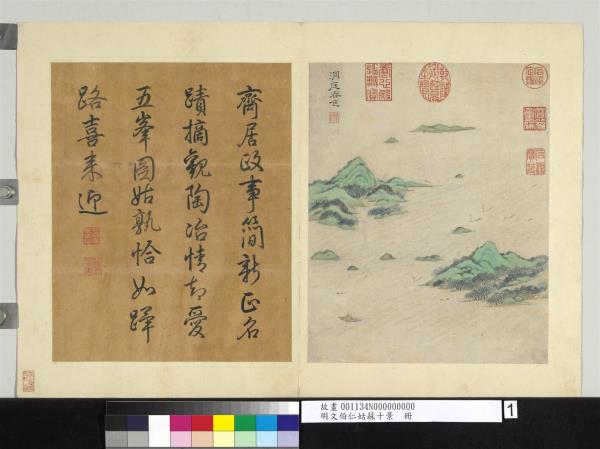 齋居政事簡新正名
蹟摘觀陶冶情却愛
五峯圖姑孰恰如蹕
路喜来迎
洞庭
故畫 001134N000000000
明文伯仁姑蘇十景 冊
1